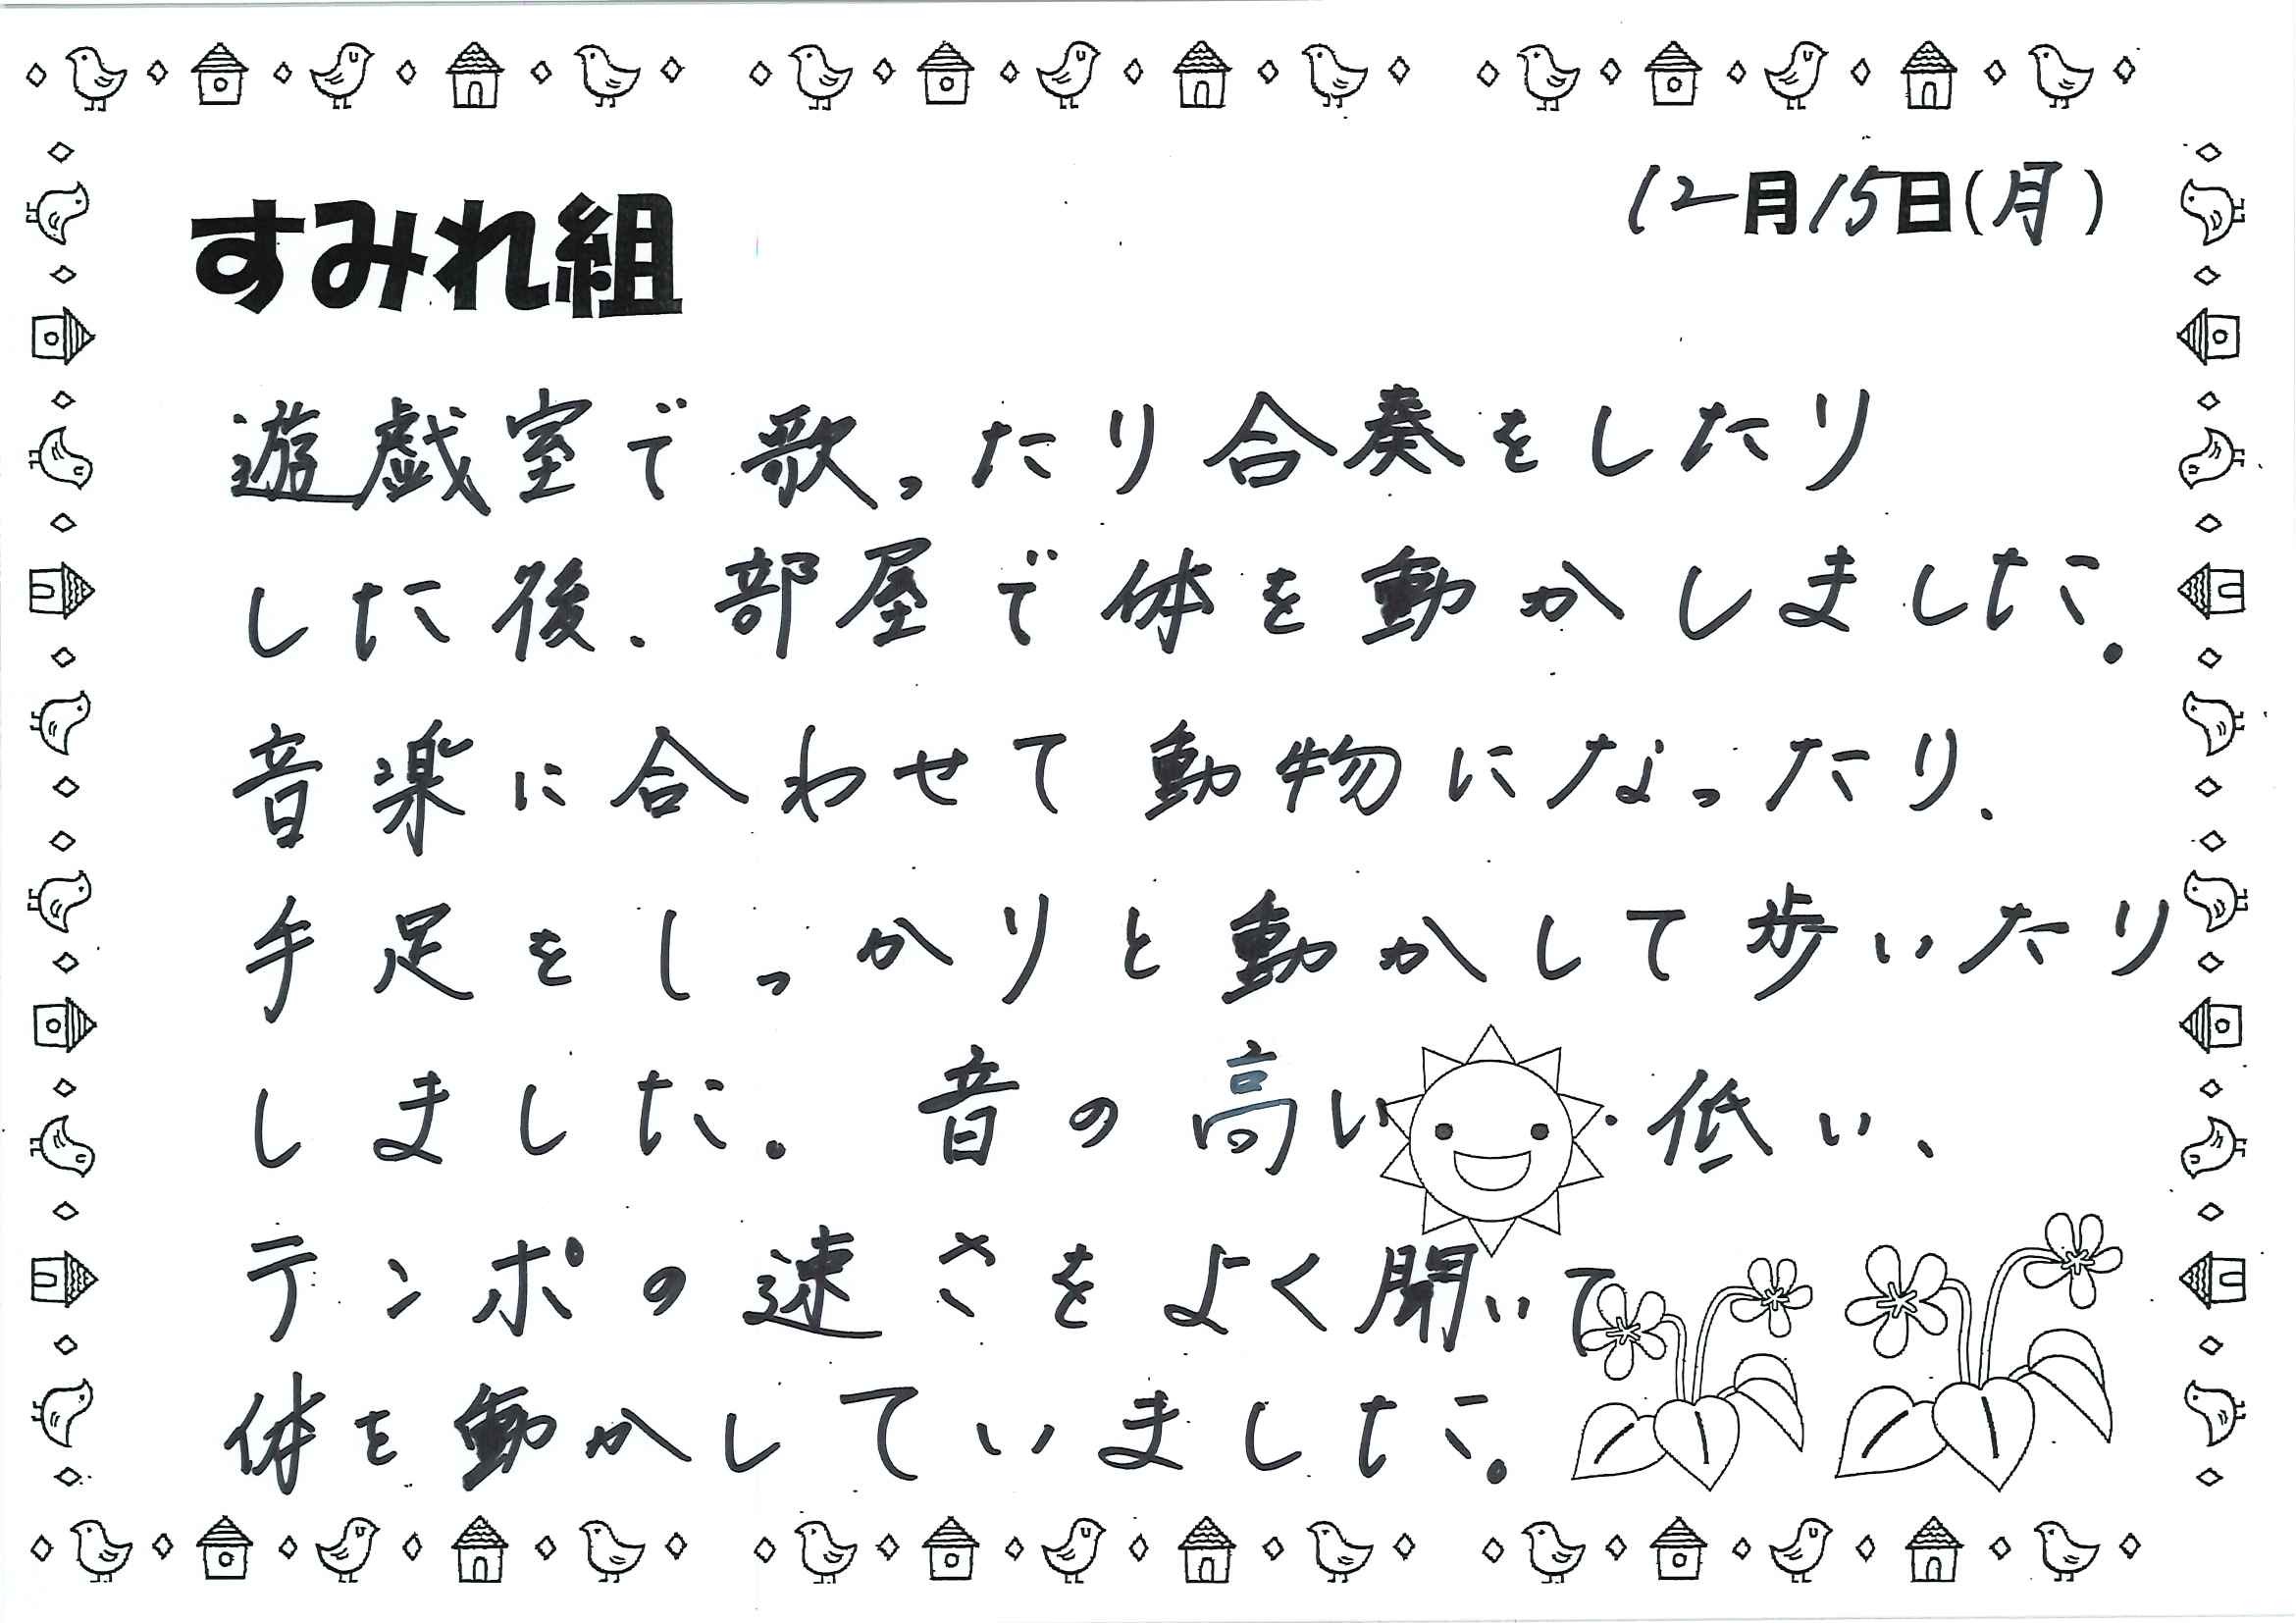 12月15日(月)
すみれ組
遊戯室で歌ったり合奏をしたり
した後、部屋で体を動かしました。
音楽に合わせて動物になったり、
手足をしっかりと動かして歩いたり
しました。音の高い・低い、
テンポの速さをよく聞いて
体を動かしていました。